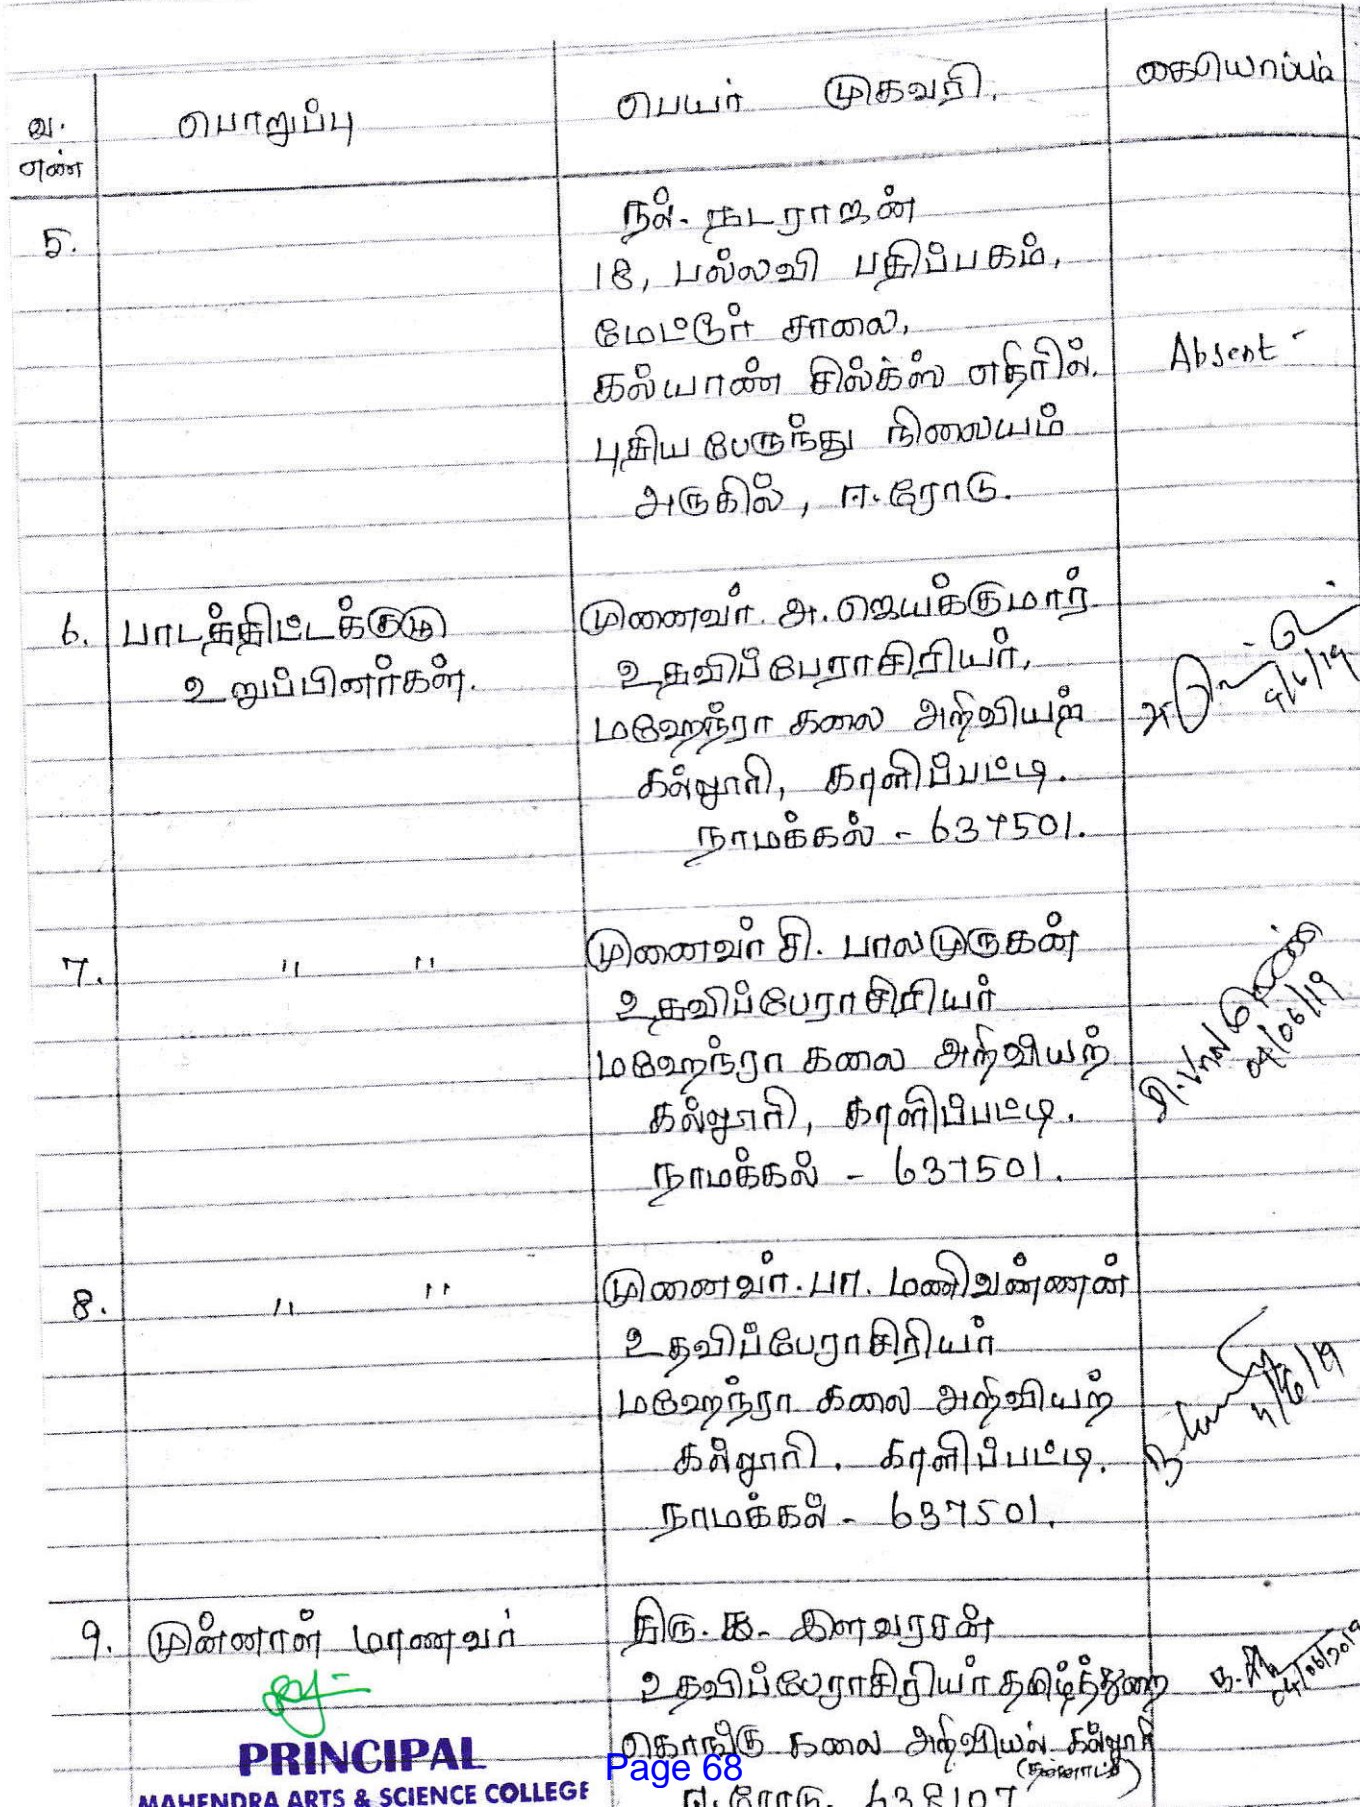 வ.
எண்
பொறுப்பு
பெயர் முகவரி.
கையொப்பம்
5.
நல். நடராஜன்
18, பல்லவி பதிப்பகம்,
மேட்டூர் சாலை,
கல்யாண் சில்க்ஸ் எதிரில்.
Absent -
புதிய பேருந்து நிலையம்
அருகில், ஈ.ரோடு.
6. பாடத்திட்டக்குழு
உறுப்பினர்கள்.
முனைவர். அ. ஜெயக்குமார்
உதவிப்பேராசிரியர்,
மஹேந்ரா கலை அறிவியற்
கல்லூரி, காளிப்பட்டி.
நாமக்கல் - 637501.
4/6/19
7. " "
முனைவர் சி. பாலமுருகன்
உதவிப்பேராசிரியர்
மஹேந்ரா கலை அறிவியற்
கல்லூரி, காளிப்பட்டி.
நாமக்கல் - 637501.
சி. பாலமுருகன்
04/06/19
8. " "
முனைவர். பா. மணிவண்ணன்
உதவிப்பேராசிரியர்
மஹேந்ரா கலை அறிவியற்
கல்லூரி. காளிப்பட்டி.
நாமக்கல் - 637501.
4/6/19
9. முன்னாள் மாணவர்
திரு. க. இளவரசன்
உதவிப்பேராசிரியர் தமிழ்த்துறை
கொங்கு கலை அறிவியல் கல்லூரி
(தன்னாட்சி)
ஈ.ரோடு. 638107
04/06/2019
PRINCIPAL
MAHENDRA ARTS & SCIENCE COLLEGE
Page 68